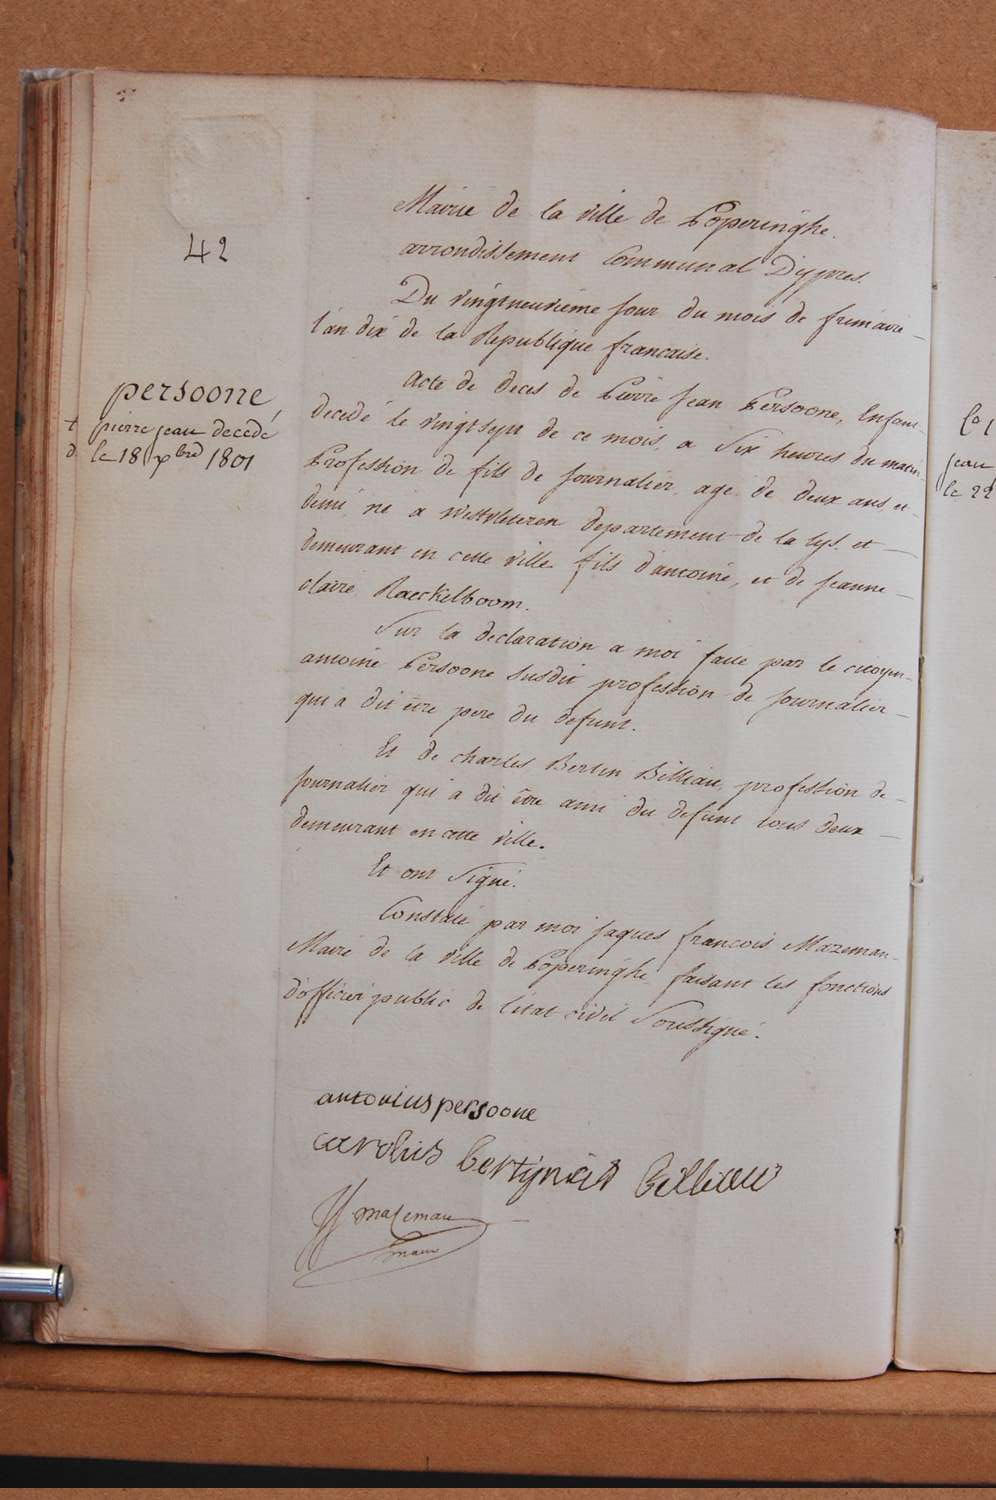 42
persoone
pierre jean decedé
le 18 xbre 1801
Mairie de la ville de Poperinghe.
arrondissement Communal D'ypres.
Du vingtneuvième jour du mois de frimaire
l'an dix de la Republique francaise.
Acte de deces de Pierre Jean Persoone, Enfant
decedé le vingtsept de ce mois, a Six heures du matin
Profession de fils de journalier, agé de deux ans et
demi, né a westvleteren departement de la Lys. et
demeurant en cette ville fils d'antoine, et de Jeanne
claire Raeckelboom.
Sur la declaration a moi faite par le citoyen
antoine Persoone susdit profession de journalier
qui a dit être pere du defunt.
Et de charles Bertin Billiau, profession de
journalier qui a dit être ami du defunt tous deux
demeurant en cette ville.
Et ont Signé.
Constaté par moi jaques francois Mazeman
Maire de la ville de Poperinghe, faisant les fonctions
d'officier public de l'etat civil Soussigné.
antonius persoone
carolus bertynus billiau
Mazeman
maire
jean
le 22